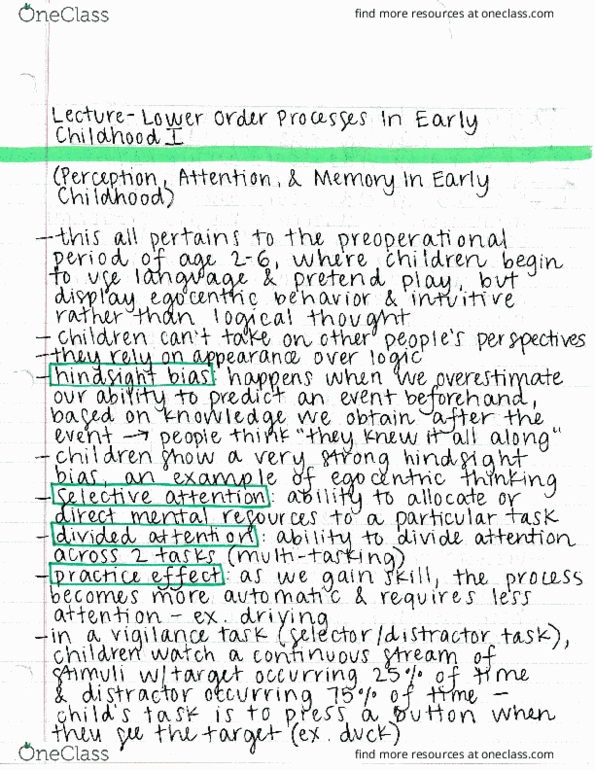 OneClass
find more resources at oneclass.com
Lecture- Lower Order Processes In Early
Childhood I
(Perception, Attention, & Memory In Early
Childhood)
- this all pertains to the preoperational
period of age 2-6, where children begin
to use language & pretend play, but
display egocentric behavior & intuitive
rather than logical thought
- children can't take on other people's perspectives
- they rely on appearance over logic
- hindsight bias: happens when we overestimate
our ability to predict an event beforehand,
based on knowledge we obtain after the
event → people think "they knew it all along"
- children show a very strong hindsight
bias, an example of egocentric thinking
- selective attention: ability to allocate or
direct mental resources to a particular task
- divided attention: ability to divide attention
across 2 tasks (multi-tasking)
- practice effect: as we gain skill, the process
becomes more automatic & requires less
attention - ex. driving
- in a vigilance task (selector/distractor task),
children watch a continuous stream of
stimuli w/target occurring 25% of time
& distractor occurring 75% of time -
child's task is to press a button when
they see the target (ex. duck)
OneClass
find more resources at oneclass.com